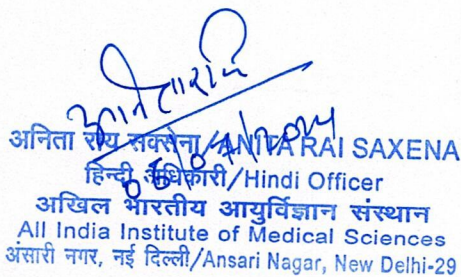 अनिता राय सक्सेना/ANITA RAI SAXENA
हिन्दी अधिकारी/Hindi Officer
अखिल भारतीय आयुर्विज्ञान संस्थान
All India Institute of Medical Sciences
अंसारी नगर, नई दिल्ली/Ansari Nagar, New Delhi-29